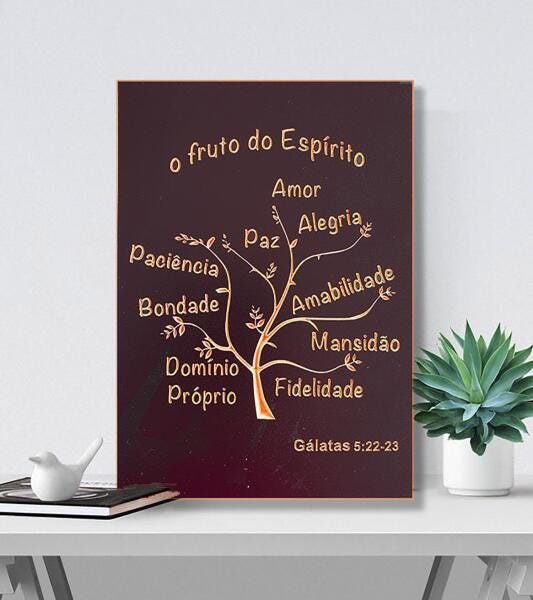 o fruto do Espírito
Amor
Alegria
Paz
Paciência
Amabilidade
Bondade
Mansidão
Domínio
Próprio
Fidelidade
Gálatas 5:22-23